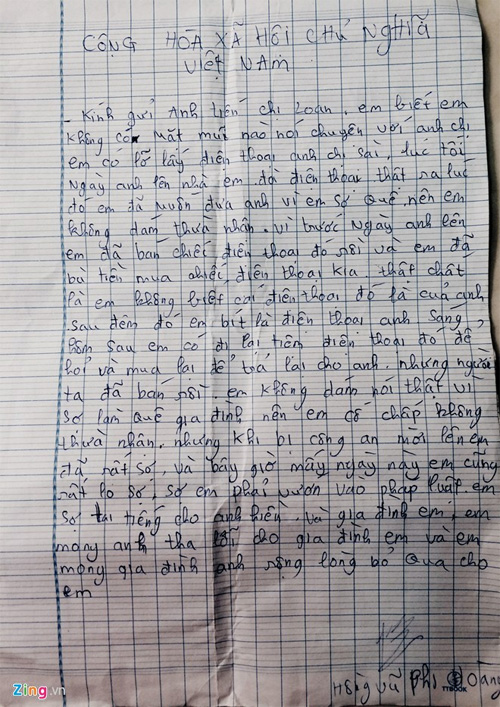 CỘNG HÒA XÃ HỘI CHỦ NGHĨA
VIỆT NAM
- Kính gửi Anh tiến chị Loan. em biết em
không có mặt mũi nào nói chuyện với anh chị
em có lỡ lấy điện thoại anh chị sài, lúc tối
Ngày anh lên nhà em. đã điện thoại thật ra lúc
đó em đã muốn đưa anh vì em sợ quê nên em
không dám thừa nhận. vì trước ngày anh lên
em đã bán chiếc điện thoại đó rồi và em đã
bù tiền mua chiếc điện thoại kia. thật chất
là em không biết cái điện thoại đó là của anh
sau đêm đó em bít là điện thoại anh sang
hôm sau em có đi lại tiệm điện thoại đó để
hỏi và mua lại để trả lại cho anh. nhưng người
ta đã bán rồi. em không dám nói thật vì
sợ làm quê gia đình nên em cố chấp không
thừa nhận. nhưng khi bị công an mời lên em
đã rất sợ, và bây giờ mấy ngày này em cũng
rất lo sợ, sợ em phải vươn vào pháp luật. em
sợ tai tiếng cho anh hiền. và gia đình em. em
mong anh tha lỗi cho gia đình em và em
mong gia đình anh rộng lòng bỏ qua cho
em
vũ phi
Zing.vn
TTBOOK